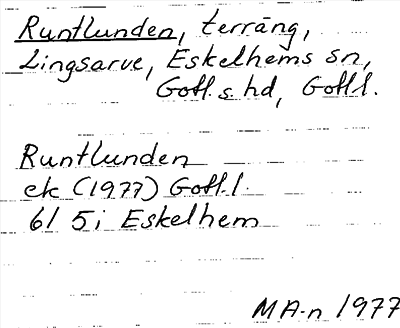 Runtlunden, terräng,
Lingsarve, Eskelhems sn,
Gotl. s. hd, Gotl l.
Runtlunden
ek (1977) Gotl. l.
6I 5i Eskelhem
MA-n 1977